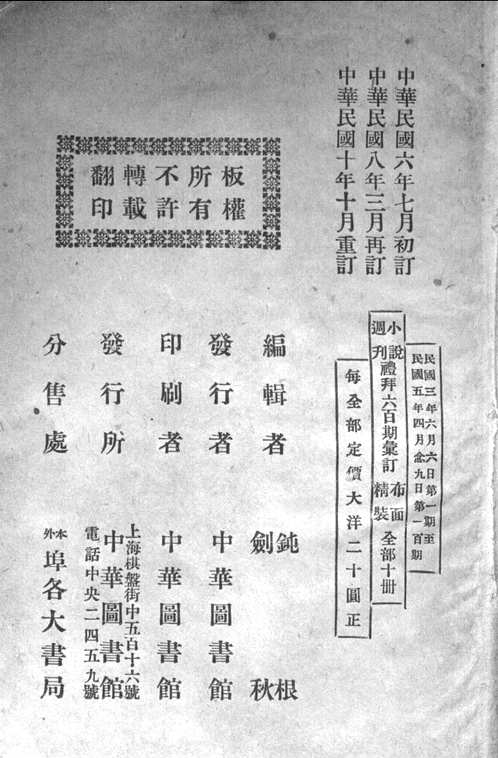 中華民國六年七月初訂
中華民國八年三月再訂
中華民國十年十月重訂
板權
所有
不許
轉載
翻印
民國三年六月六日第一期至
民國五年四月念九日第一百期
小說
週刊
禮拜六百期彙訂
布面
精裝
全部十冊
每全部定價大洋二十圓正
編輯者
鈍根
劍秋
發行者
中華圖書館
印刷者
中華圖書館
發行所
上海棋盤街中五百十六號
中華圖書館
電話中央二四五九號
分售處
本外埠各大書局